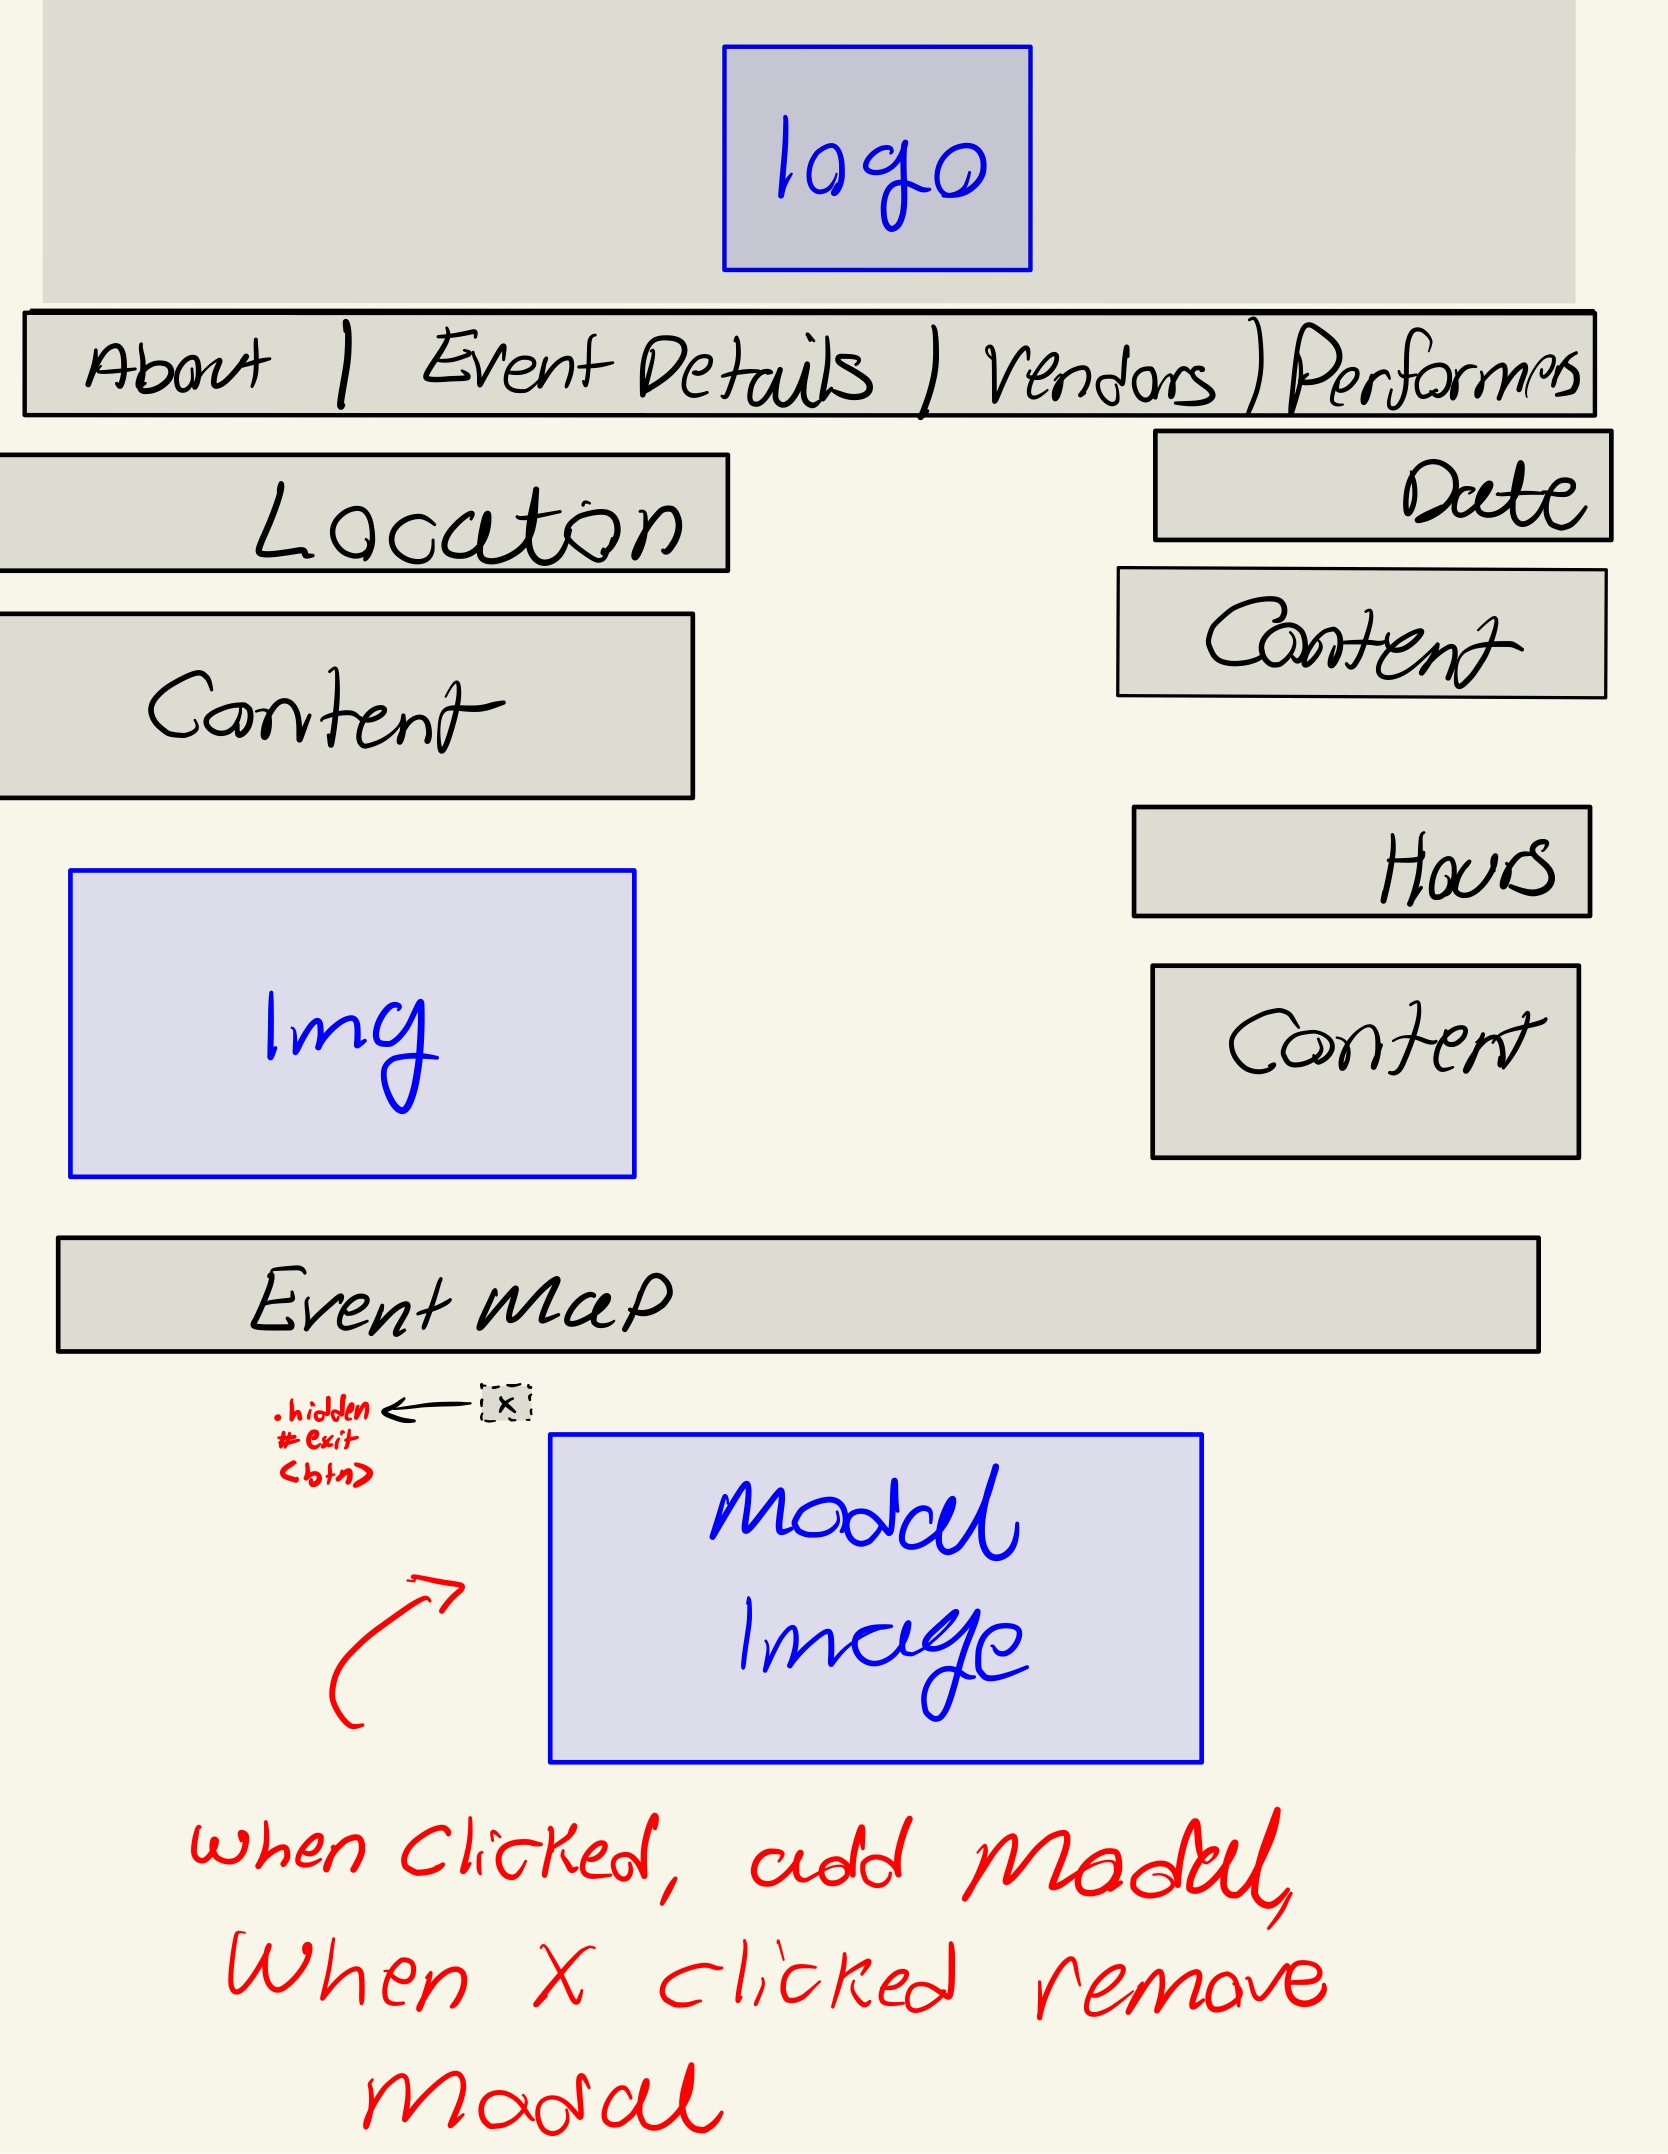 logo
About | Event Details | Vendors | Performers
Location
Date
Content
Content
Hours
Img
Content
Event Map
x
.hidden
# exit
<btn>
Modal
Image
when clicked, add Modal,
When X clicked remove
Modal